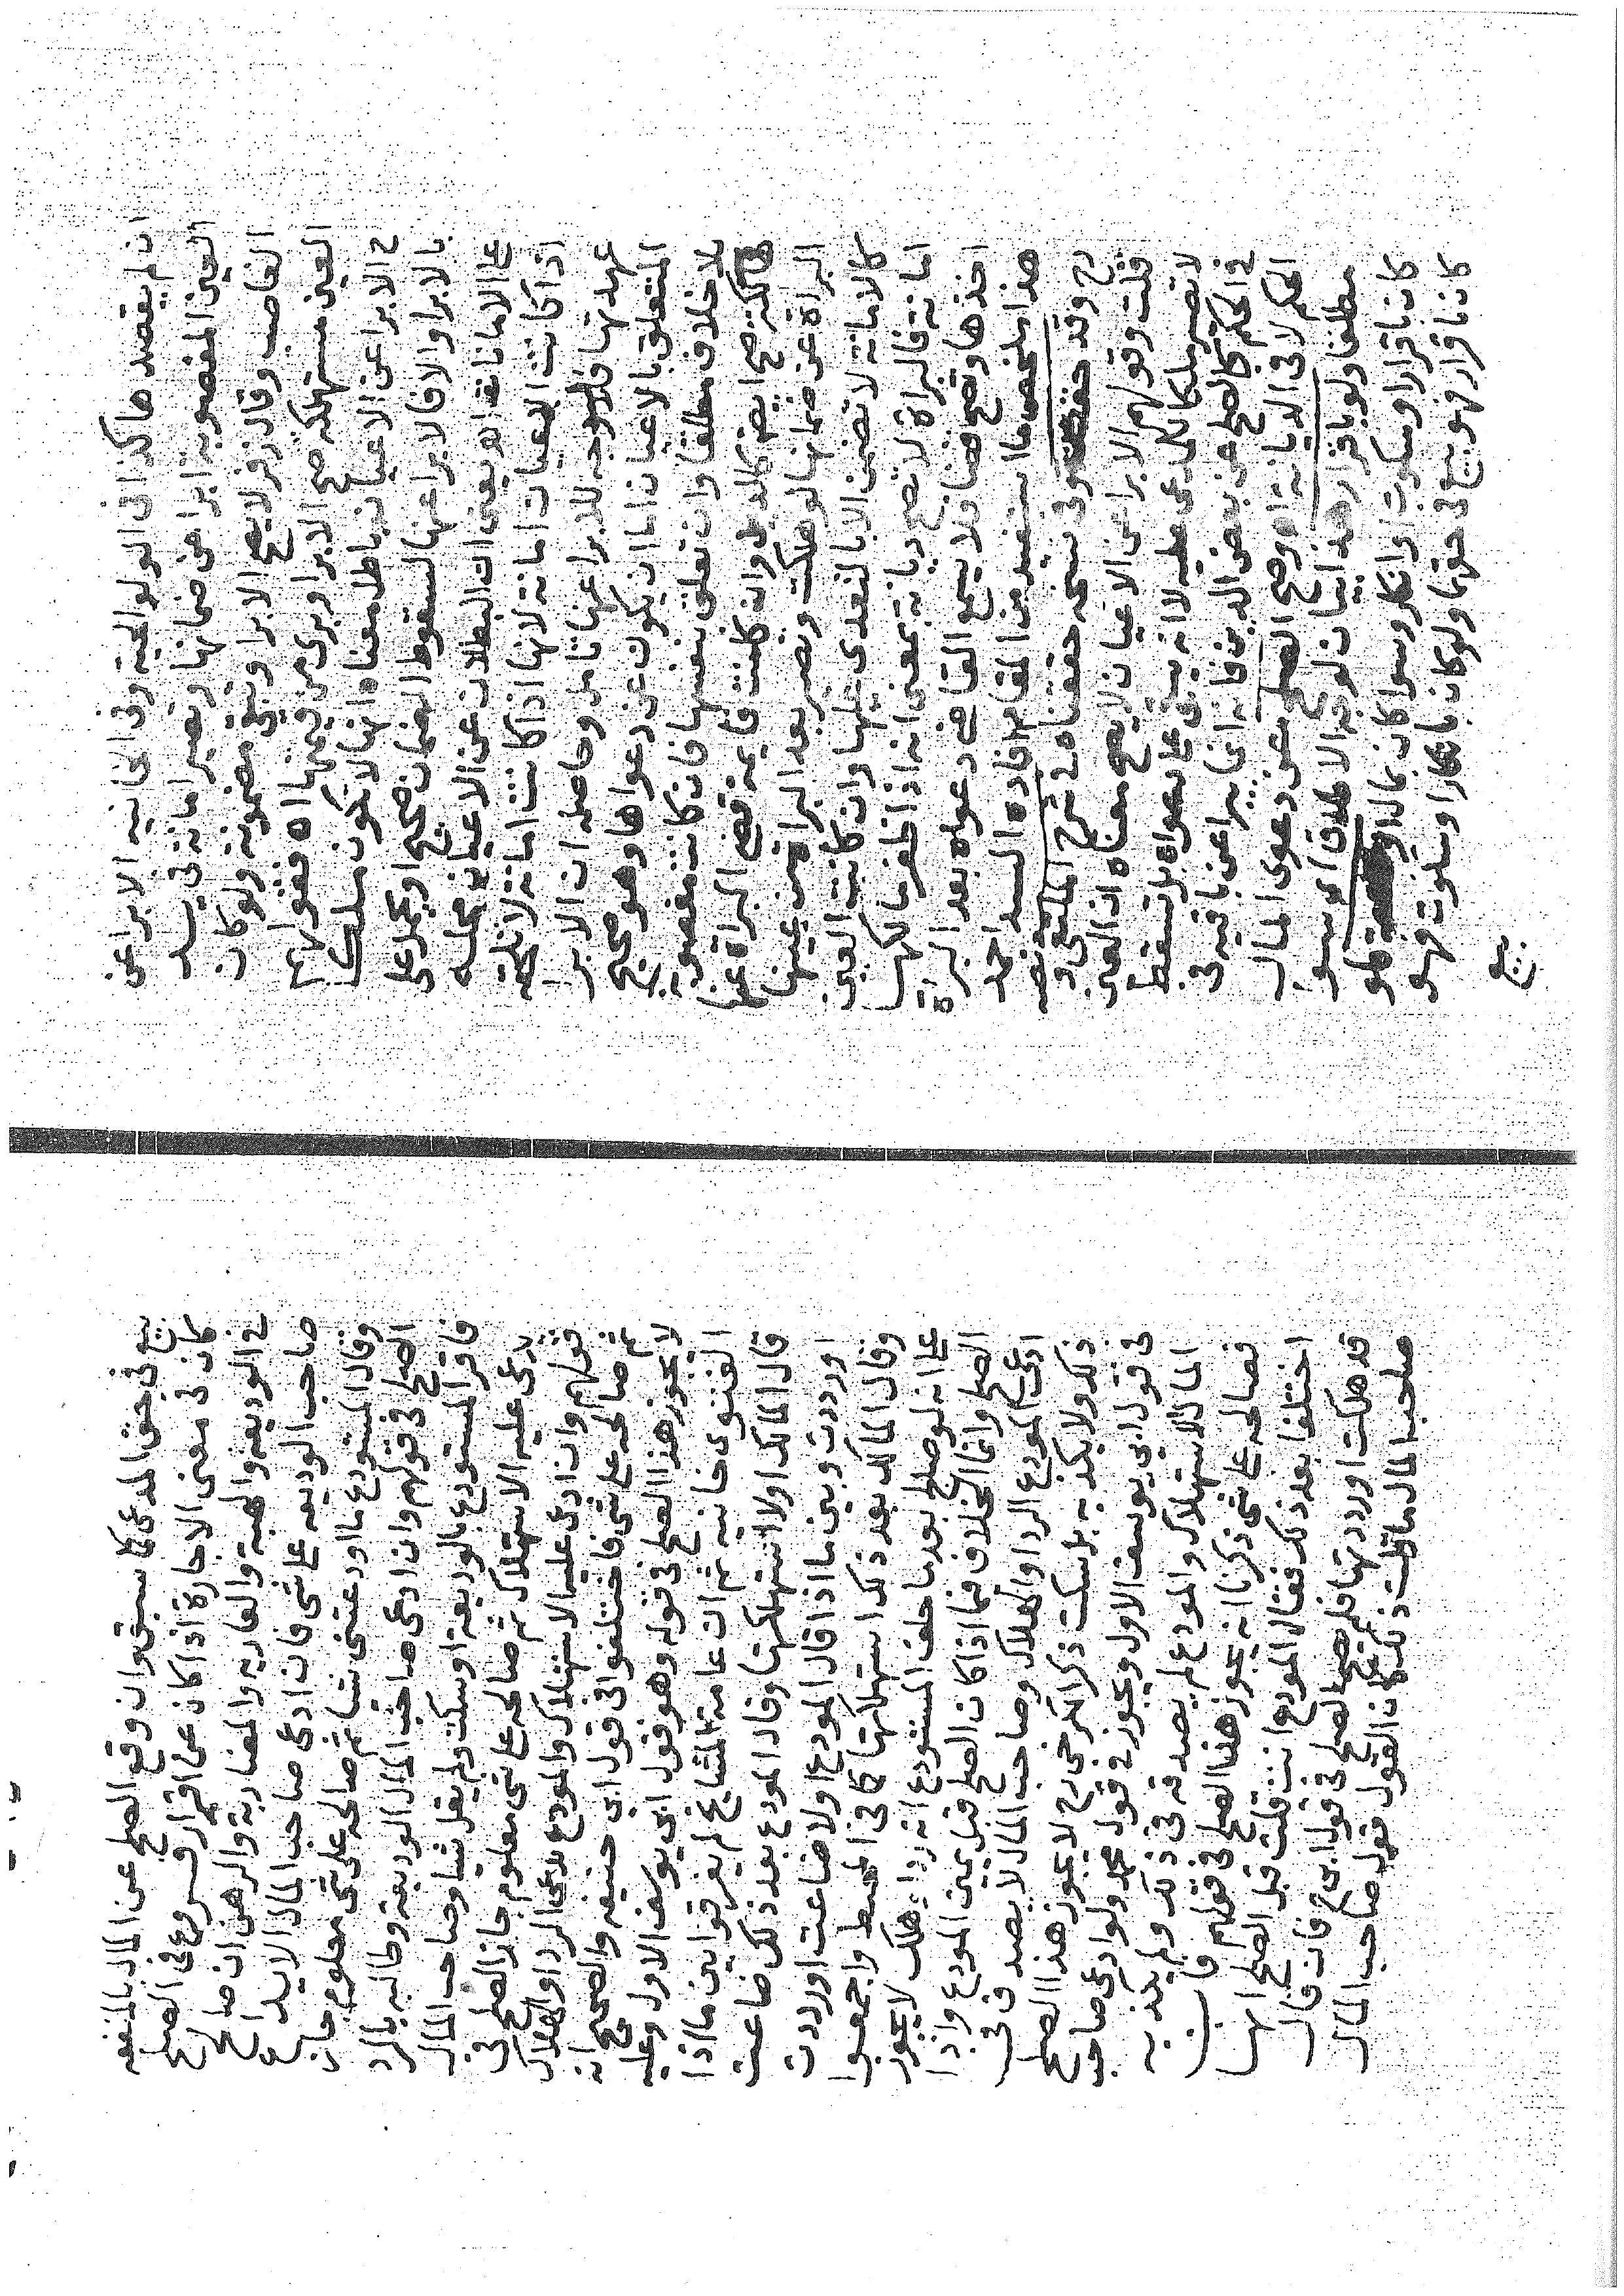 ان لم يقصدها كذا فى الولوالجية وفى الخانيه الابرا عن
العين المغصوبة ابرا عن ضمانها وتصير امانة فى يد
الغاصب وقال زفر لا يصح الابرا وتبقى مضمونة ولو كان
العين مستهلكه صح الابرا وبرى من قيمتها اه فقولهم
الابرا عن الاعيان باطل معناه انها لا تكون ملكا
بالابرا والا فالابرا عنها لسقوط الضمان صحيح او يحمل على
الامانات اه يعنى ان البطلان عن الاعيان محله
اذا كانت الاعيان امانة لانها اذا كانت امانة لا تلحقه
عهدتها فلا وجه للابرا عنها تامل وحاصله ان الابرا
المتعلق بالاعيان اما ان يكون عن دعواها وهو صحيح
بلا خلاف مطلقا وان تعلق بنفسها فان كانت مغصوبة
هالكة صح ايضا كالدين وان كانت قايمة فمعنى البراة عنها
البراة عن ضمانها لو هلكت وتصير بعد البراة من عينها
كالامانة لا تضمن الا بالتعدى عليها وان كانت العين
امانة فالبراة لا تصح ديانة بمعنى انه اذا ظفر مالكها
اخذها وتصح قضا ولا يسمع القاضى دعواه بعد البراة
هذا ملخص ما استفيد من المقام افاده السيد احمد
وقد حققناه فى شرح الملتقى ونصه
قلت وقولهم الابرا عن الاعيان لا يصح معناه ان العين
لا تصير ملكا للمدعى عليه لا انه يبقى على دعواه بل تسقط
فى الحكم كالصلح عن بعض الدين فانه انما يبرا عن باقيه فى
الحكم لا فى الديانة وصح الصلح عن دعوى المال
مطلقا ولو باقرار هذا بيان لوجه الاطلاق اى سوا
كان باقرار او سكوت او انكار وسوا كان بمال او
كان باقرار فهو بيع فى حقهما ولو كان بانكار او سكوت فهو
بيع
بيع فى حق المدعى كما سبق وان وقع الصلح عن المال بالمنفعه
كان فى معنى الاجارة اذا كان عن اقرار فروع فى الصلح
فى الوديعة والهبة والعاريه والمضاربة والرهن ان صالح
صاحب الوديعه على شى فان ادعى صاحب المال الايداع
وقال المستودع ما اودعتنى شيا ثم صالحه على شى معلوم جاز
الصلح فى قولهم وان ادعى صاحب المال الوديعة وطالبه بالرد
فاقر المستودع بالوديعة او سكت ولم يقل شيا وصاحب المال
يدعى عليه الاستهلاك ثم صالحه على شى معلوم جاز الصلح فى
قولهم وان ادعى عليه الاستهلاك والمودع يدعى الرد او الهلاك
ثم صالحه على شى فاختلفوا فى قول ابى حنيفه والصحيح انه
لا يجوز هذا الصلح فى قوله وهو قول ابى يوسف الاول وعليه
الفتوى خانيه ثم ان عامة المشايخ لم يفرقوا بين ما اذا
قال المالك اولا استهلكتها وقال المودع بعد ذلك ضاعت
او رددت وبين ما اذا قال المودع اولا ضاعت او رددت
وقال المالك بعد ذلك استهلكتها كما فى المحيط واجمعوا
على انه لو صلح بعد ما حلف المستودع انه رد او هلك لا يجوز
الصلح وانما الخلاف فيما اذا كان الصلح قبل يمين المودع واذا
ادعى المودع الرد او الهلاك وصاحب المال لا يصدق فى
ذلك ولا يكذب بل سكت ذكر الكرخى رح لا يجوز هذا الصلح
فى قول ابى يوسف الاول ويجوز فى قول محمد ولو ادعى صاحب
المال الاستهلاك والمودع لم يصدقه فى ذلك ولم يكذبه
فصالحه على شى ذكرنا انه يجوز هذا الصلح فى قولهم فان
اختلفا بعد ذلك فقال المودع انت قلت قبل الصلح انها
قد هلكت او رددتها فلم يصح الصلح فى قول ابى ح فان قال
صاحب المال ما قلت ذلك كان القول قول صاحب المال